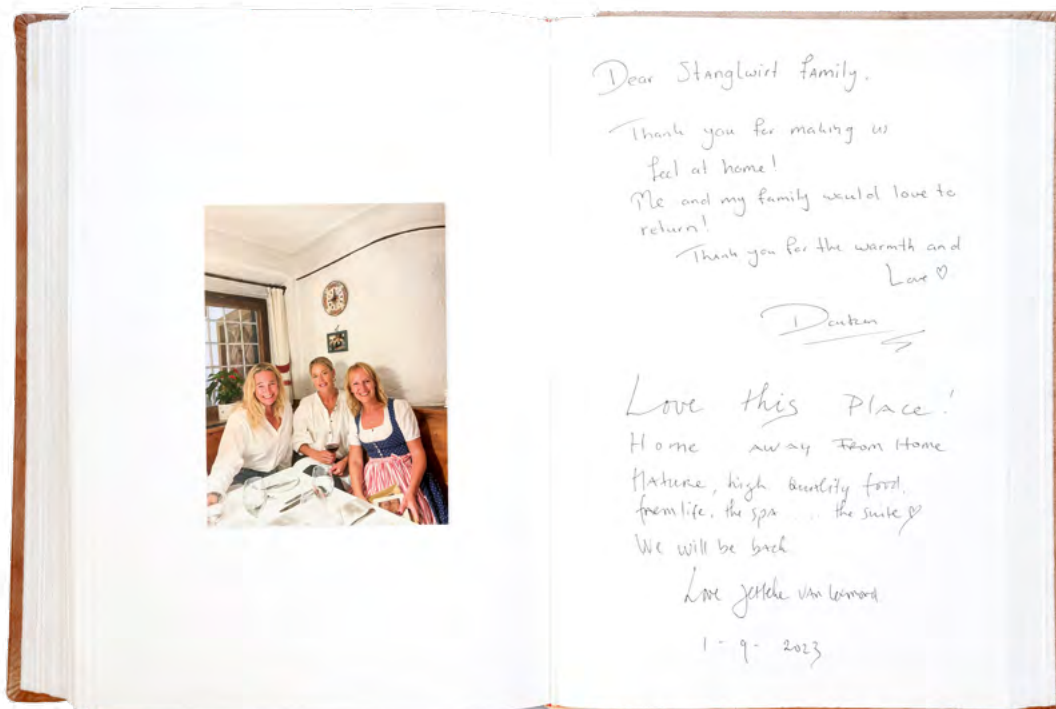 Dear Stanglwirt family.
Thank you for making us
feel at home!
Me and my family would love to
return!
Thank you for the warmth and
Love ♡
Doutzen
Love this Place!
Home away From Home
Nature, high Quality food,
farmlife, the spa .... the suite ♡
We will be back
Love Jetteke van
1 - 9 - 2023